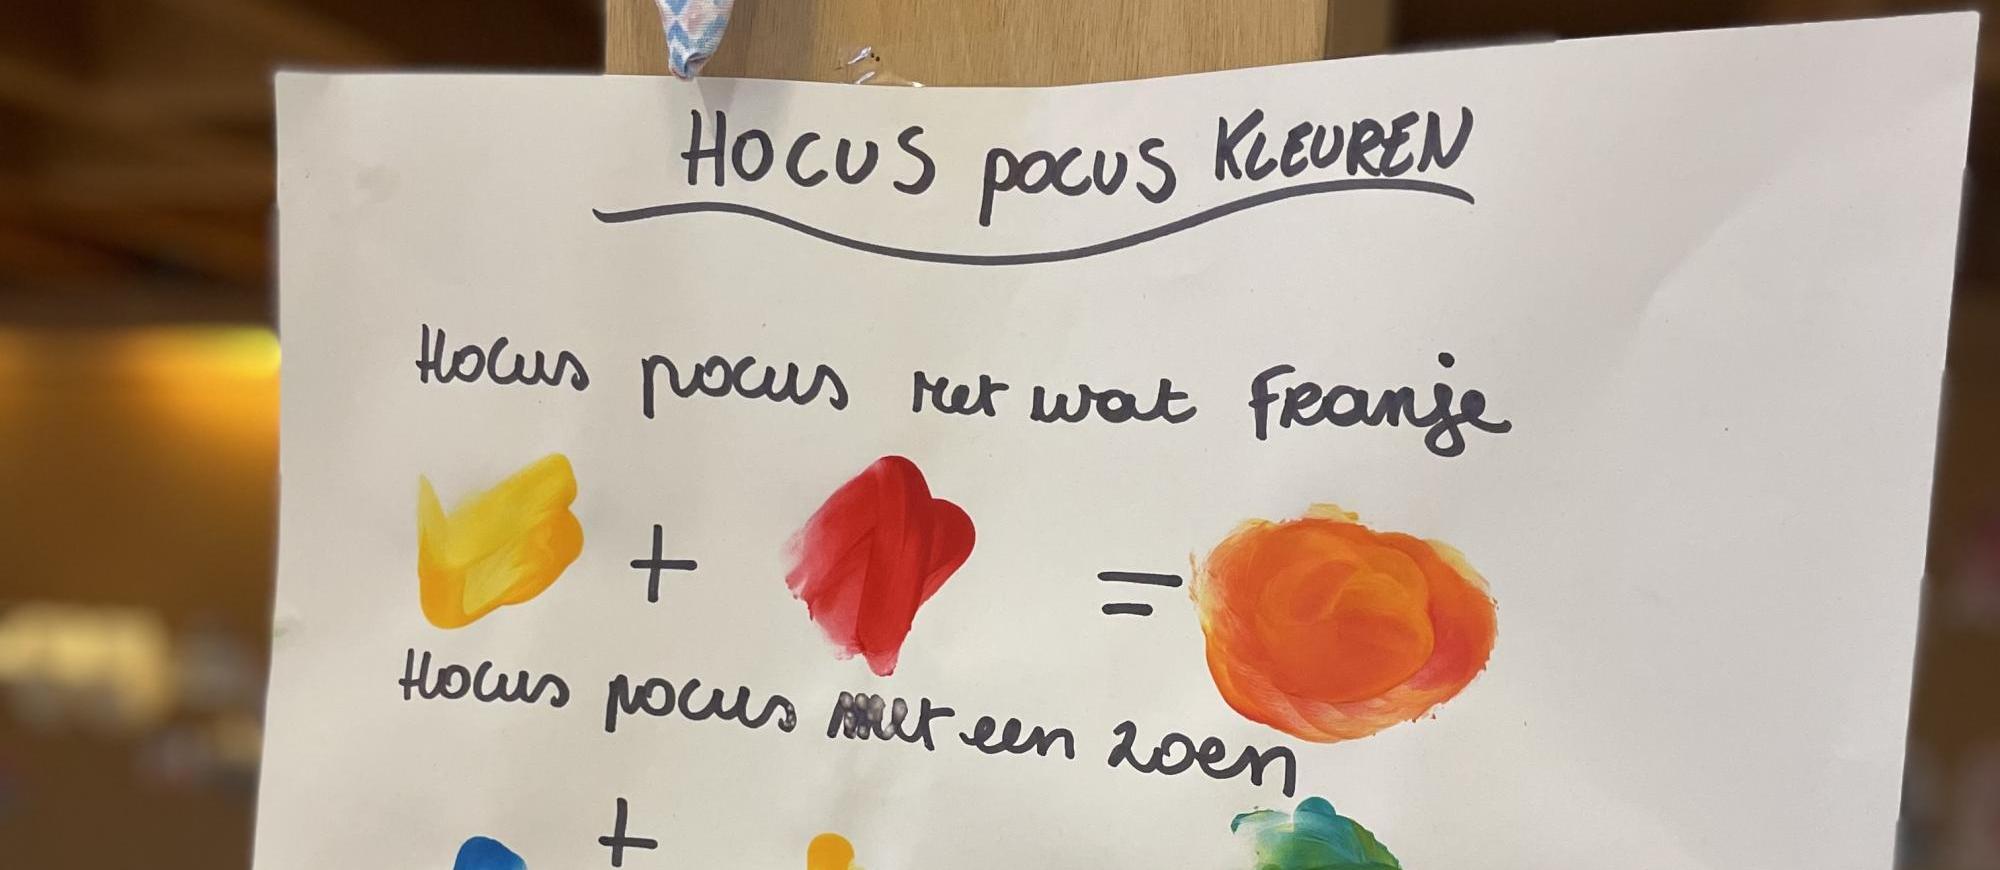 HOCUS pocus KLEUREN
Hocus pocus met wat Franje
+ =
Hocus pocus met een zoen
+